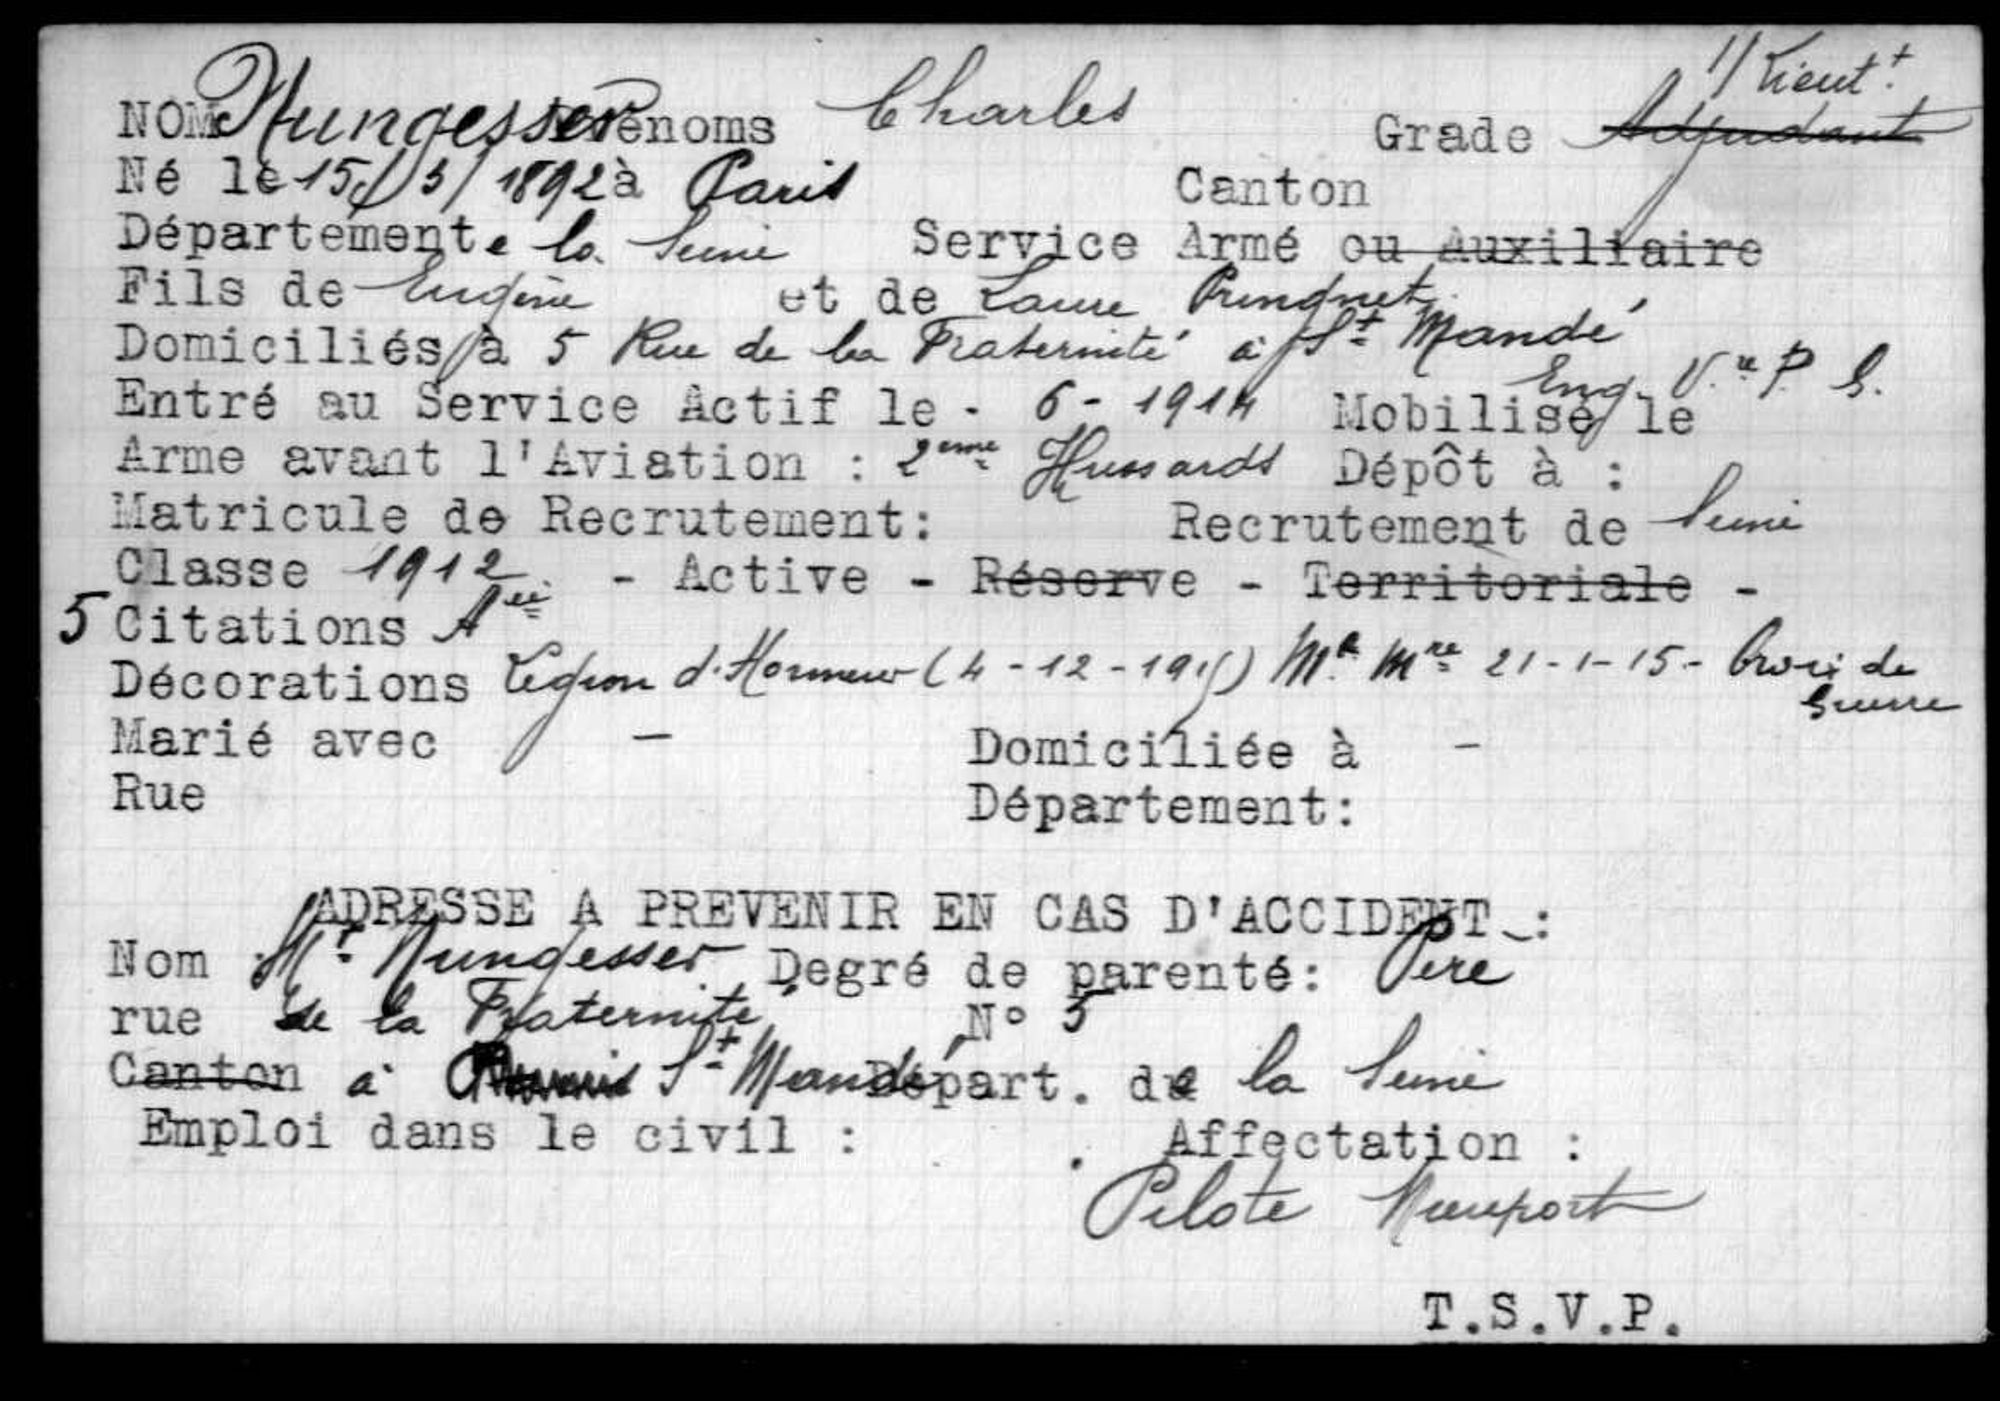 NOM Nungesser Prénoms Charles Grade Adjudant S/Lieut^t.
Né le 15/3/1892 à Paris Canton
Département de la Seine Service Armé ou Auxiliaire
Fils de Eugène et de Laure
Domiciliés à 5 Rue de la Fraternité à S^t Mandé
Entré au Service Actif le - 6 - 1914 Mobilisé le Eng. V.^re P. G.
Arme avant l'Aviation : 2^eme Hussards Dépôt à :
Matricule de Recrutement: Recrutement de Seine
Classe 1912 - Active - Réserve - Territoriale -
5 Citations A^ée
Décorations Légion d'Honneur (4-12-191 ) M^le M^re 21-1-15 - Croix de
Guerre
Marié avec — Domiciliée à -
Rue Département:
ADRESSE A PREVENIR EN CAS D'ACCIDENT :
Nom : M^r Nungesser Degré de parenté: Père
rue de la Fraternité N° 5
Canton à S^t Mandé Départ. de la Seine
Emploi dans le civil : Affectation :
Pilote Nieuport
T.S.V.P.